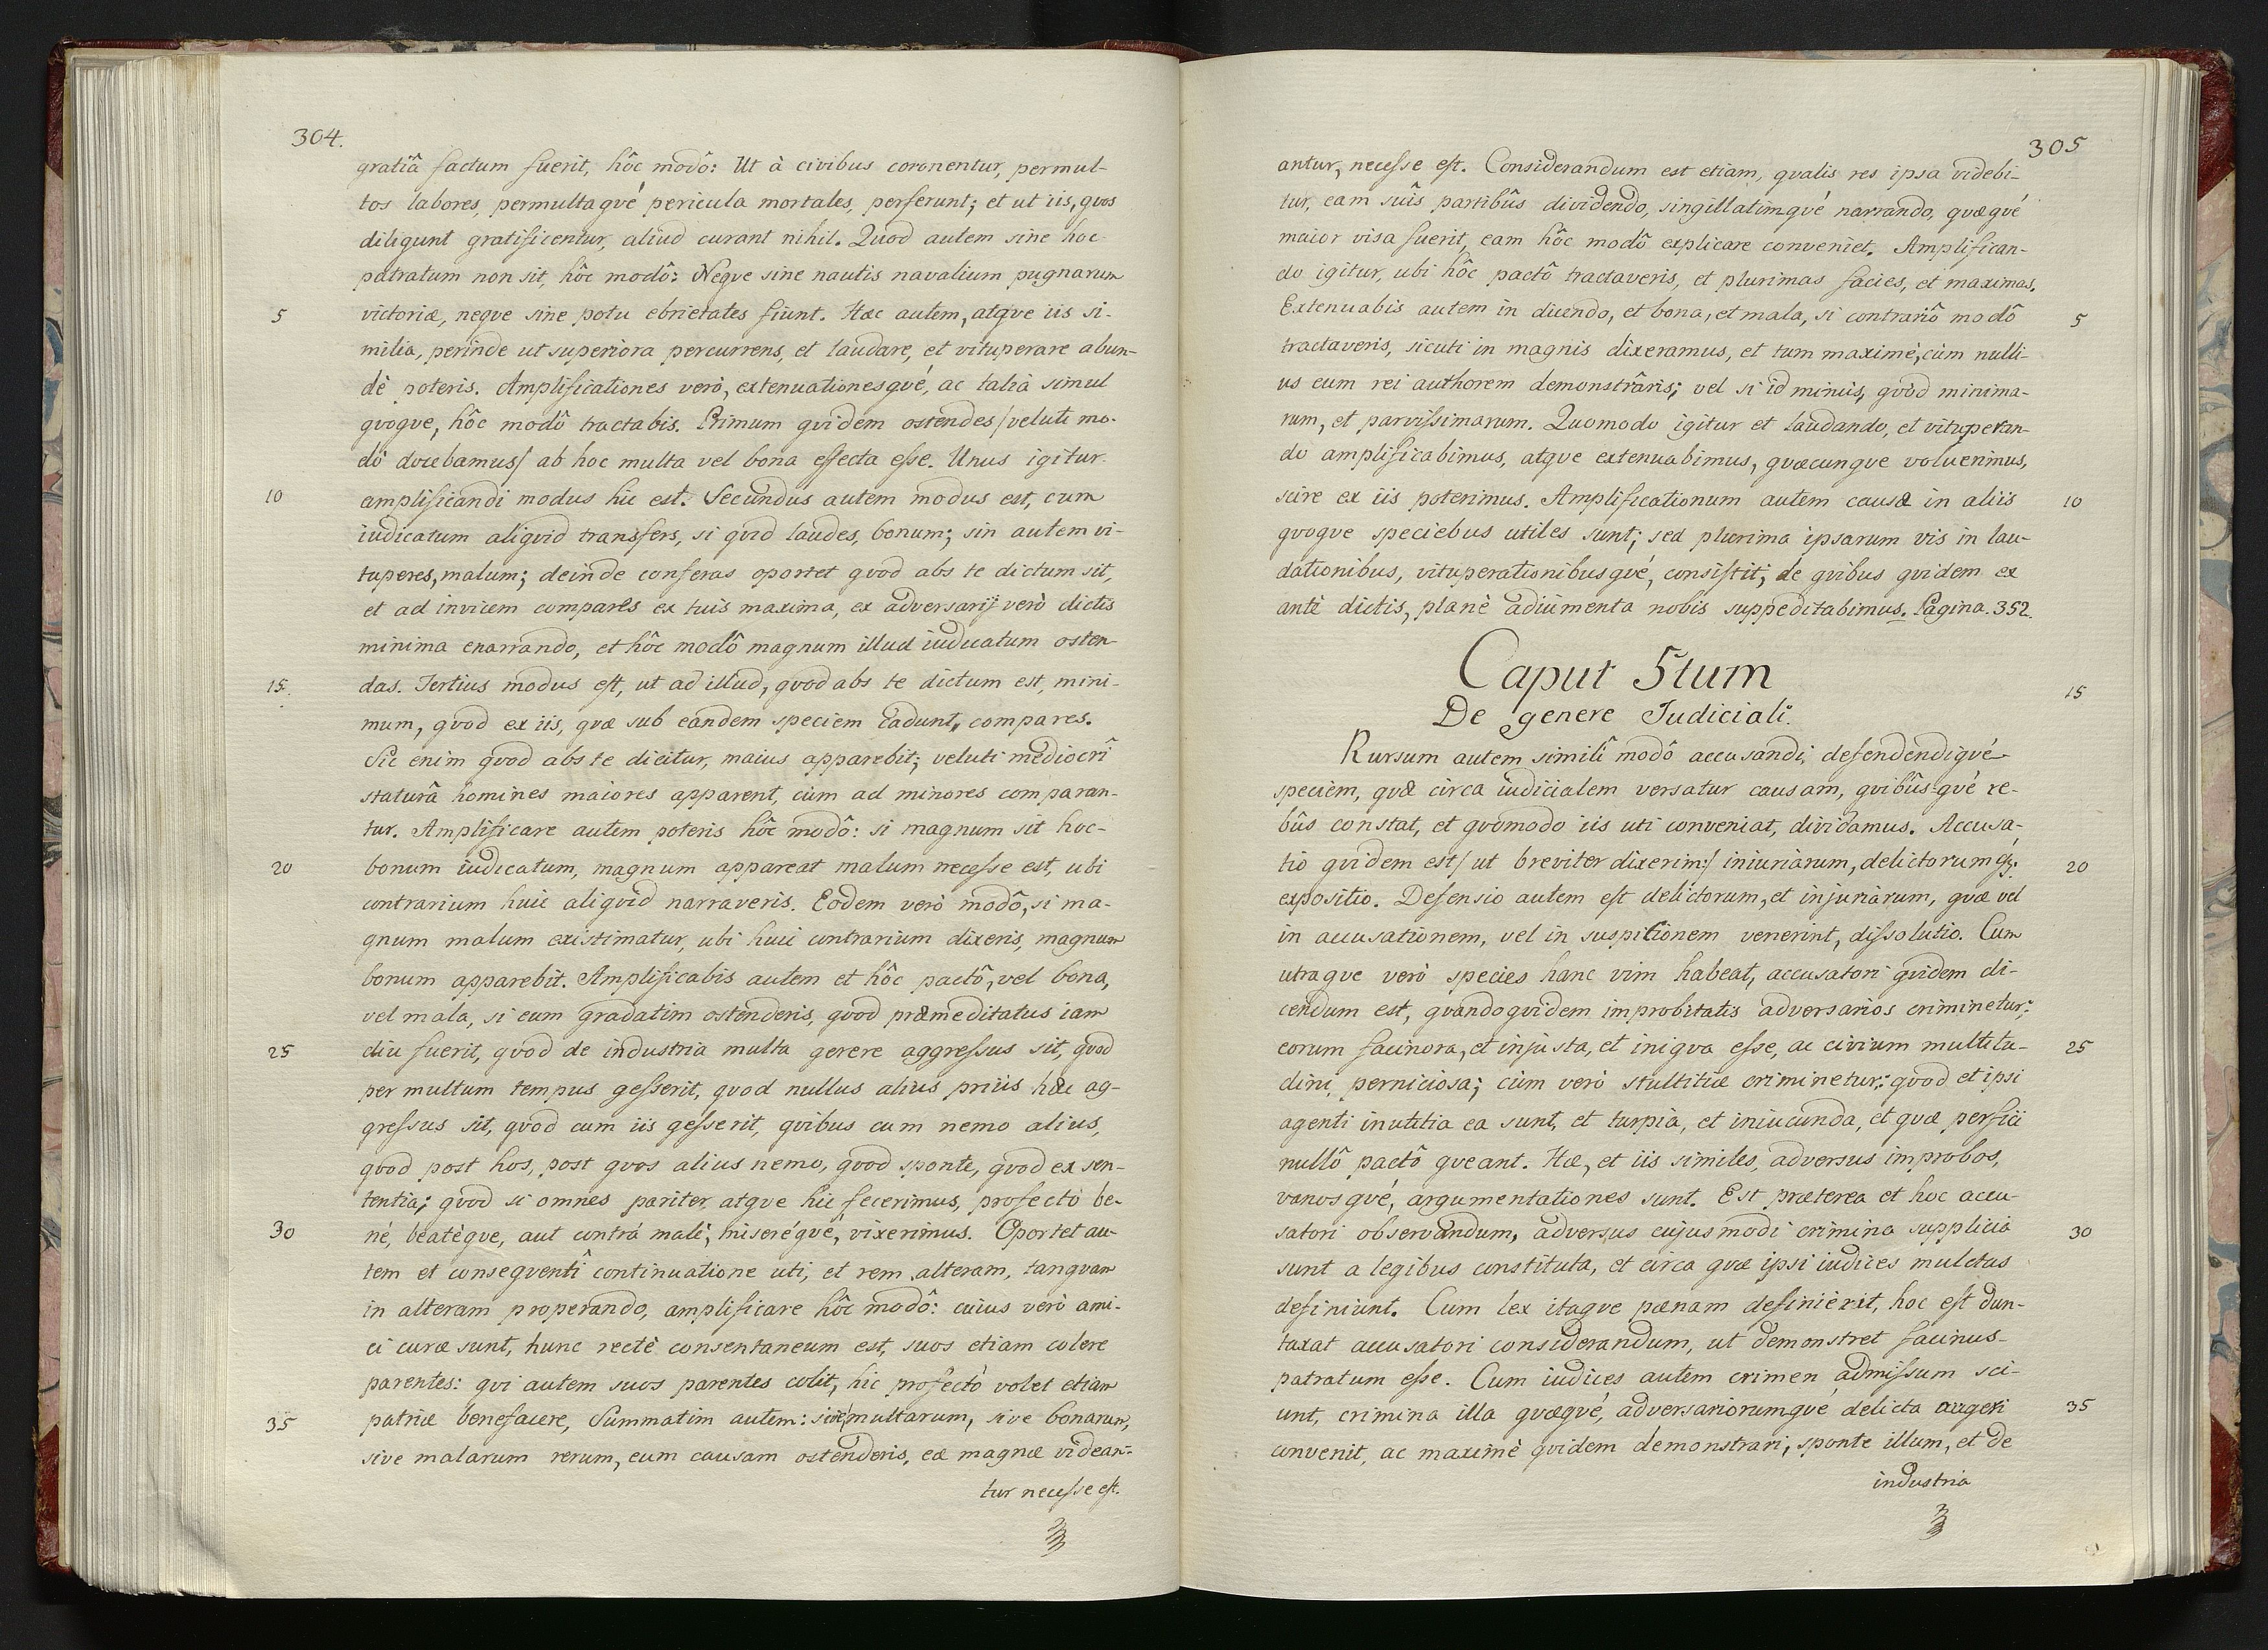 304.
gratiâ factum fuerit, hôc modô: Ut à civibus coronentur, permul-
tos labores, permultaqvé pericula mortales, perferunt; et ut iis, qvos
diligunt gratificentur, aliud curant nihil. Quod autem sine hoc
patratum non sit, hôc modô: Neqve sine nautis navalium pugnarum
5 victoriæ, neqve sine potu ebrietates fiunt. Hæc autem, atqve iis si-
milia, perinde ut superiora percurrens, et laudare, et vituperare abun-
dè poteris. Amplificationes verò, extenuationesqvé, ac talia simul
qvoqve, hôc modô tractabis. Primum qvidem ostendes/veluti mo-
dò docebamus/ ab hoc multa vel bona effecta esse. Unus igitur
10 amplificandi modus hic est. Secundus autem modus est, cum
iudicatum aliqvid transfers, si qvid laudes, bonum; sin autem vi-
tuperes, malum; deinde conferas oportet qvod abs te dictum sit,
et ad invicem compares ex tuis maxima, ex adversarij verò dictis
minima enarrando, et hôc modô magnum illud iudicatum osten
15. das. Tertius modus est, ut ad illud, qvod abs te dictum est, mini-
mum, qvod ex iis, qvæ sub eandem speciem cadunt, compares.
Sic enim qvod abs te dicitur, maius apparebit; veluti mediocrî
staturâ homines maiores apparent, cùm ad minores comparan-
tur. Amplificare autem poteris hôc modô: si magnum sit hoc
20 bonum iudicatum, magnum appareat malum necesse est, ubi
contrarium huic aliqvid narraveris. Eodem verò modô, si ma-
gnum malum existimatur, ubi huic contrarium dixeris, magnum
bonum apparebit. Amplificabis autem et hôc pactô, vel bona,
vel mala, si eum gradatim ostenderis, qvod præmeditatus iam
25 diu fuerit, qvod de industria multa gerere aggressus sit, qvod
per multum tempus gesserit, qvod nullus alius priùs hæc ag-
gressus sit, qvod cum iis gesserit, qvibus cum nemo alius,
qvod post hos, post qvos alius nemo, qvod sponte, qvod ex sen-
tentia; qvod si omnes pariter, atqve hic fecerimus, profectò be-
30 né, beatèqve, aut contrá malè, miserèqvé, vixerimus. Oportet au-
tem et conseqventî continuatione uti, et rem alteram, tanqvam
in alteram properando, amplificare hôc modô: cuius verò ami-
ci curæ sunt, hunc rectè consentaneum est, suos etiam colere
parentes: qvi autem suos parentes colit, hic profectò volet etiam
35 patriæ benefacere, Summatim autem: sivé multarum, sive bonarum,
sive malarum rerum, eum causam ostenderis, eæ magnæ videan-
tur necesse est.
305
antur, necesse est. Considerandum est etiam, qvalis res ipsa videbi-
tur, eam suîs partibûs dividendo, singillatimqvé narrando, qvæqvé
maior visa fuerit, eam hôc modô explicare conveniet. Amplifican-
do igitur, ubi hôc pactô tractaveris, et plurimas facies, et maximas.
Extenuabis autem in dicendo, et bona, et mala, si contrariô modô 5
tractaveris, sicuti in magnis dixeramus, et tum maximè, cùm nulli-
us eum rei authorem demonstrâris; vel si id minùs, qvòd minima-
rum, et parvissimarum. Quomodo igitur et laudando, et vituperan-
do amplificabimus, atqve extenuabimus, qvæcunqve voluerimus,
scire ex iis poterimus. Amplificationum autem causæ in aliis 10
qvoqve speciebus utiles sunt; sed plurima ipsarum vis in lau-
dationibus, vituperationibusqvé, consistit; de qvibus qvidem ex
antè dictis, planè adiumenta nobis suppeditabimus. Pagina. 352.
Caput 5tum 15
De genere Judiciali.
Rursum autem similî modô accusandi, defendendiqvé
speciem, qvæ circa iudicialem versatur causam, qvibûsqvé re-
bûs constat, et qvomodo iis uti conveniat, dividamus. Accusa-
tio qvidem est/ ut breviter dixerim:/ iniuriarum, delictorumq. 20
expositio. Defensio autem est delictorum, et injuriarum, qvæ vel
in accusationem, vel in suspitionem venerint, dissolutio. Cum
utraqve verò species hanc vim habeat, accusatori qvidem di-
cendum est, qvandoqvidem improbitatis adversarios criminetur;
eorum facinora, et injusta, et iniqva esse, ac civium multitu- 25
dini perniciosa; cùm verò stultitiæ criminetur: qvod et ipsi
agenti inutitia ea sunt, et turpia, et iniucunda, et qvæ perfici
nullô pactô qveant. Hæ, et iis similes, adversus improbos,
vanosqvé, argumentationes sunt. Est præterea et hoc accu-
satori observandum, adversus cujusmodi crimina supplicia 30
sunt a legibus constituta, et circa qvæ ipsi iudices mulctas
definiunt. Cum lex itaqve pænam definierit, hoc est dun-
taxat accusatori considerandum, ut demonstret facinus
patratum esse. Cum iudices autem crimen admissum sci-
unt, crimina illa qvæqvé, adversariorumqvé delicta augeri 35
convenit, ac maximè qvidem demonstrari, sponte illum, et de
industria